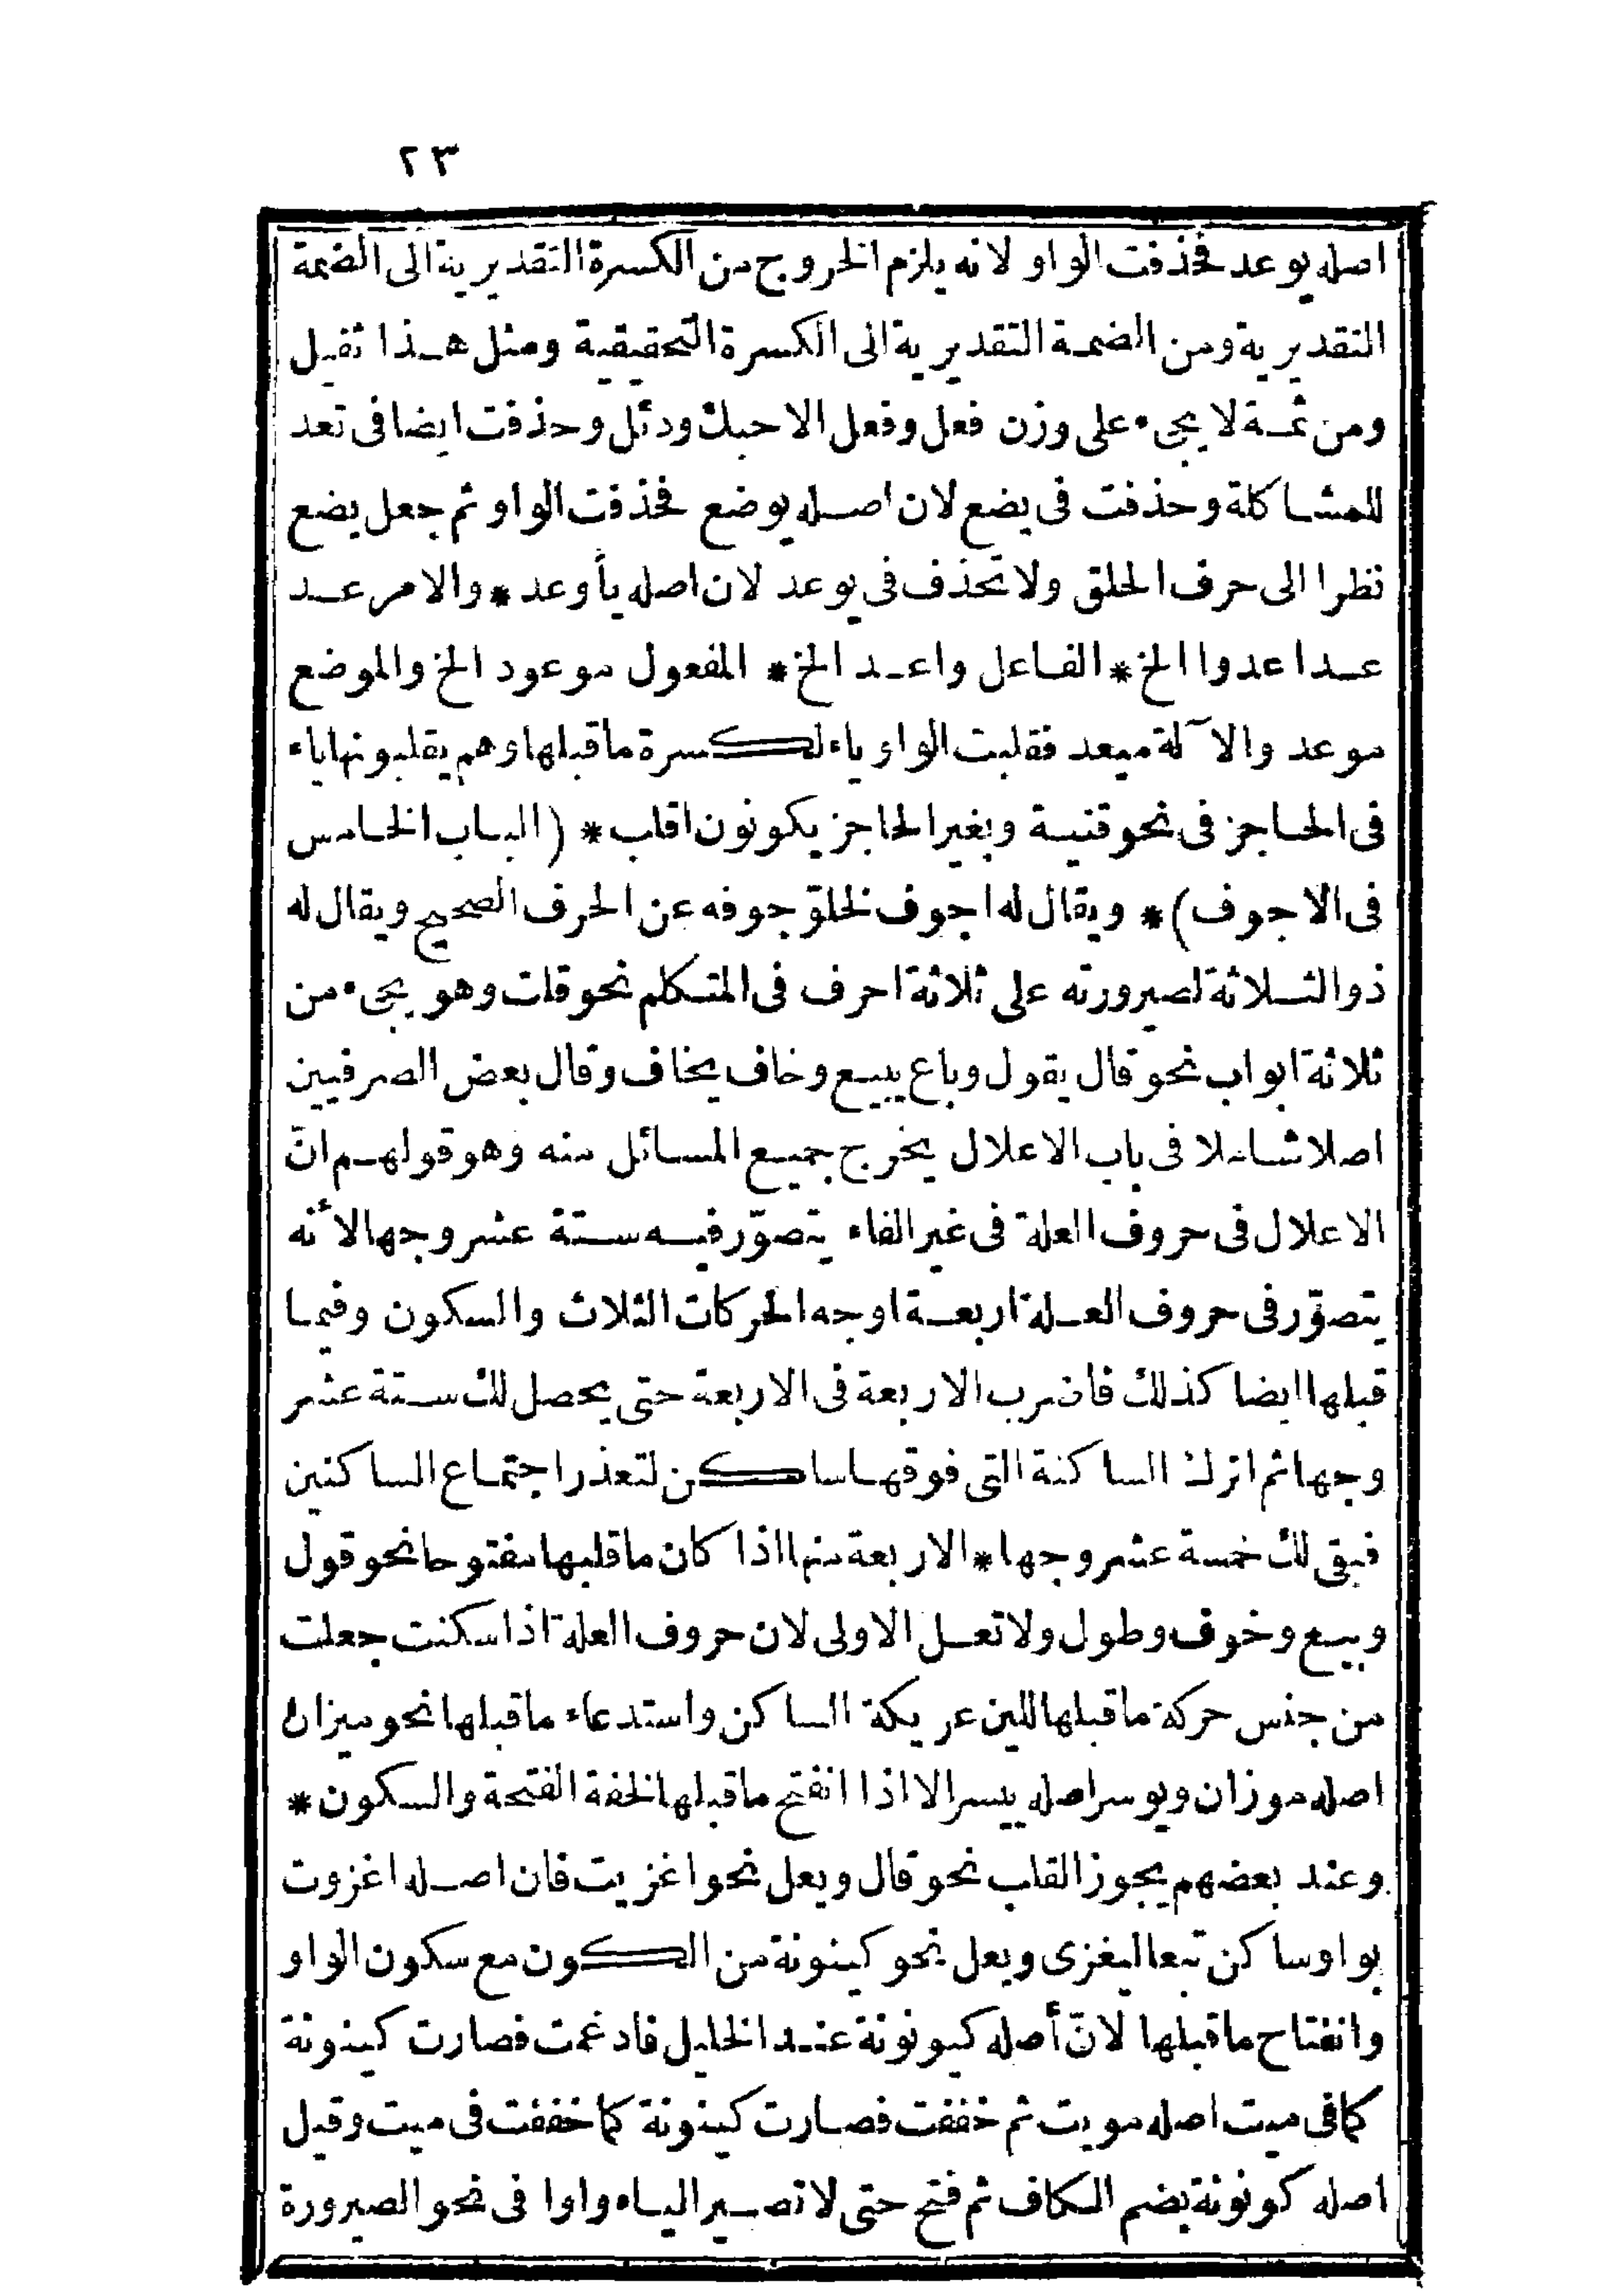 ٢٣
اصله يوعد فحذفت الواو لانه يلزم الخروج من الكسرة التقديرية الى الضمة
التقديرية ومن الضمة التقديرية الى الكسرة التحقيقية ومثل هذا ثقيل
ومن ثمة لا يجىء على وزن فعل وفعل الا حبك ودئل وحذفت ايضا فى تعد
للمشاكلة وحذفت فى يضع لان اصله يوضع فحذفت الواو ثم جعل يضع
نظرا الى حرف الحلق ولا تحذف فى يوعد لان اصله يأوعد * والامر عد
عدا عدوا الخ * الفاعل واعد الخ * المفعول موعود الخ والموضع
موعد والآلة ميعد فقلبت الواو ياء لكسرة ما قبلها وهم يقلبونها ياء
فى الحاجز فى نحو قنية وبغير الحاجز يكونون اقلب * (الباب الخامس
فى الاجوف) * ويقال له اجوف لخلوّ جوفه عن الحرف الصحيح ويقال له
ذو الثلاثة لصيرورته على ثلاثة احرف فى المتكلم نحو قلت وهو يجىء من
ثلاثة ابواب نحو قال يقول وباع يبيع وخاف يخاف وقال بعض الصرفيين
اصلا شاملا فى باب الاعلال يخرج جميع المسائل منه وهو قولهم انّ
الاعلال فى حروف العلة فى غير الفاء يتصوّر فيه ستة عشر وجها لأنه
يتصوّر فى حروف العلة اربعة اوجه الحركات الثلاث والسكون وفيما
قبلها ايضا كذلك فاضرب الاربعة فى الاربعة حتى يحصل لك ستة عشر
وجها ثم اترك الساكنة التى فوقها ساكن لتعذر اجتماع الساكنين
فبقى لك خمسة عشر وجها * الاربعة منها اذا كان ما قلبها مفتوحا نحو قول
وبيع وخوف وطول ولا تعل الاولى لان حروف العلة اذا سكنت جعلت
من جنس حركة ما قبلها للين عريكة الساكن واستدعاء ما قبلها نحو ميزان
اصله موزان ويوسر اصله ييسر الا اذا انفتح ما قبلها لخفة الفتحة والسكون *
وعند بعضهم يجوز القلب نحو قال ويعل نحو اغزيت فان اصله اغزوت
بواو ساكن تبعا ليغزى ويعل نحو كينونة من الكون مع سكون الواو
وانفتاح ما قبلها لانّ أصله كيونونة عند الخليل فادغمت فصارت كينونة
كما فى ميت اصله مويت ثم خففت فصارت كينونة كما خففت فى ميت وقيل
اصله كونونة بضم الكاف ثم فتح حتى لا تصير الياء واوا فى نحو الصيرورة